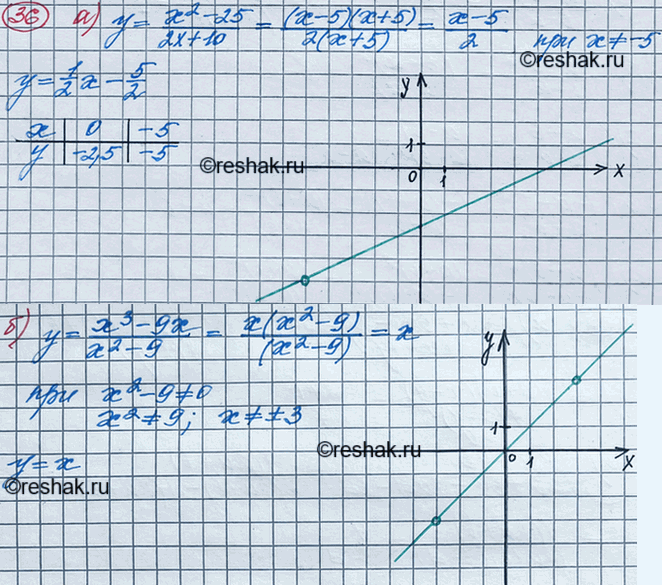 36 а) y = (x² - 25)/(2x + 10) = ((x - 5)(x + 5))/(2(x + 5)) = (x - 5)/2 при x ≠ -5
©reshak.ru
y = 1/2 x - 5/2
x | 0 | -5
y | -2,5 | -5
©reshak.ru
y
1
0 1 x
б) y = (x³ - 9x)/(x² - 9) = (x(x² - 9))/((x² - 9)) = x
при x² - 9 ≠ 0
x² ≠ 9; x ≠ ±3
y = x
©reshak.ru
©reshak.ru
y
1
0 1 x